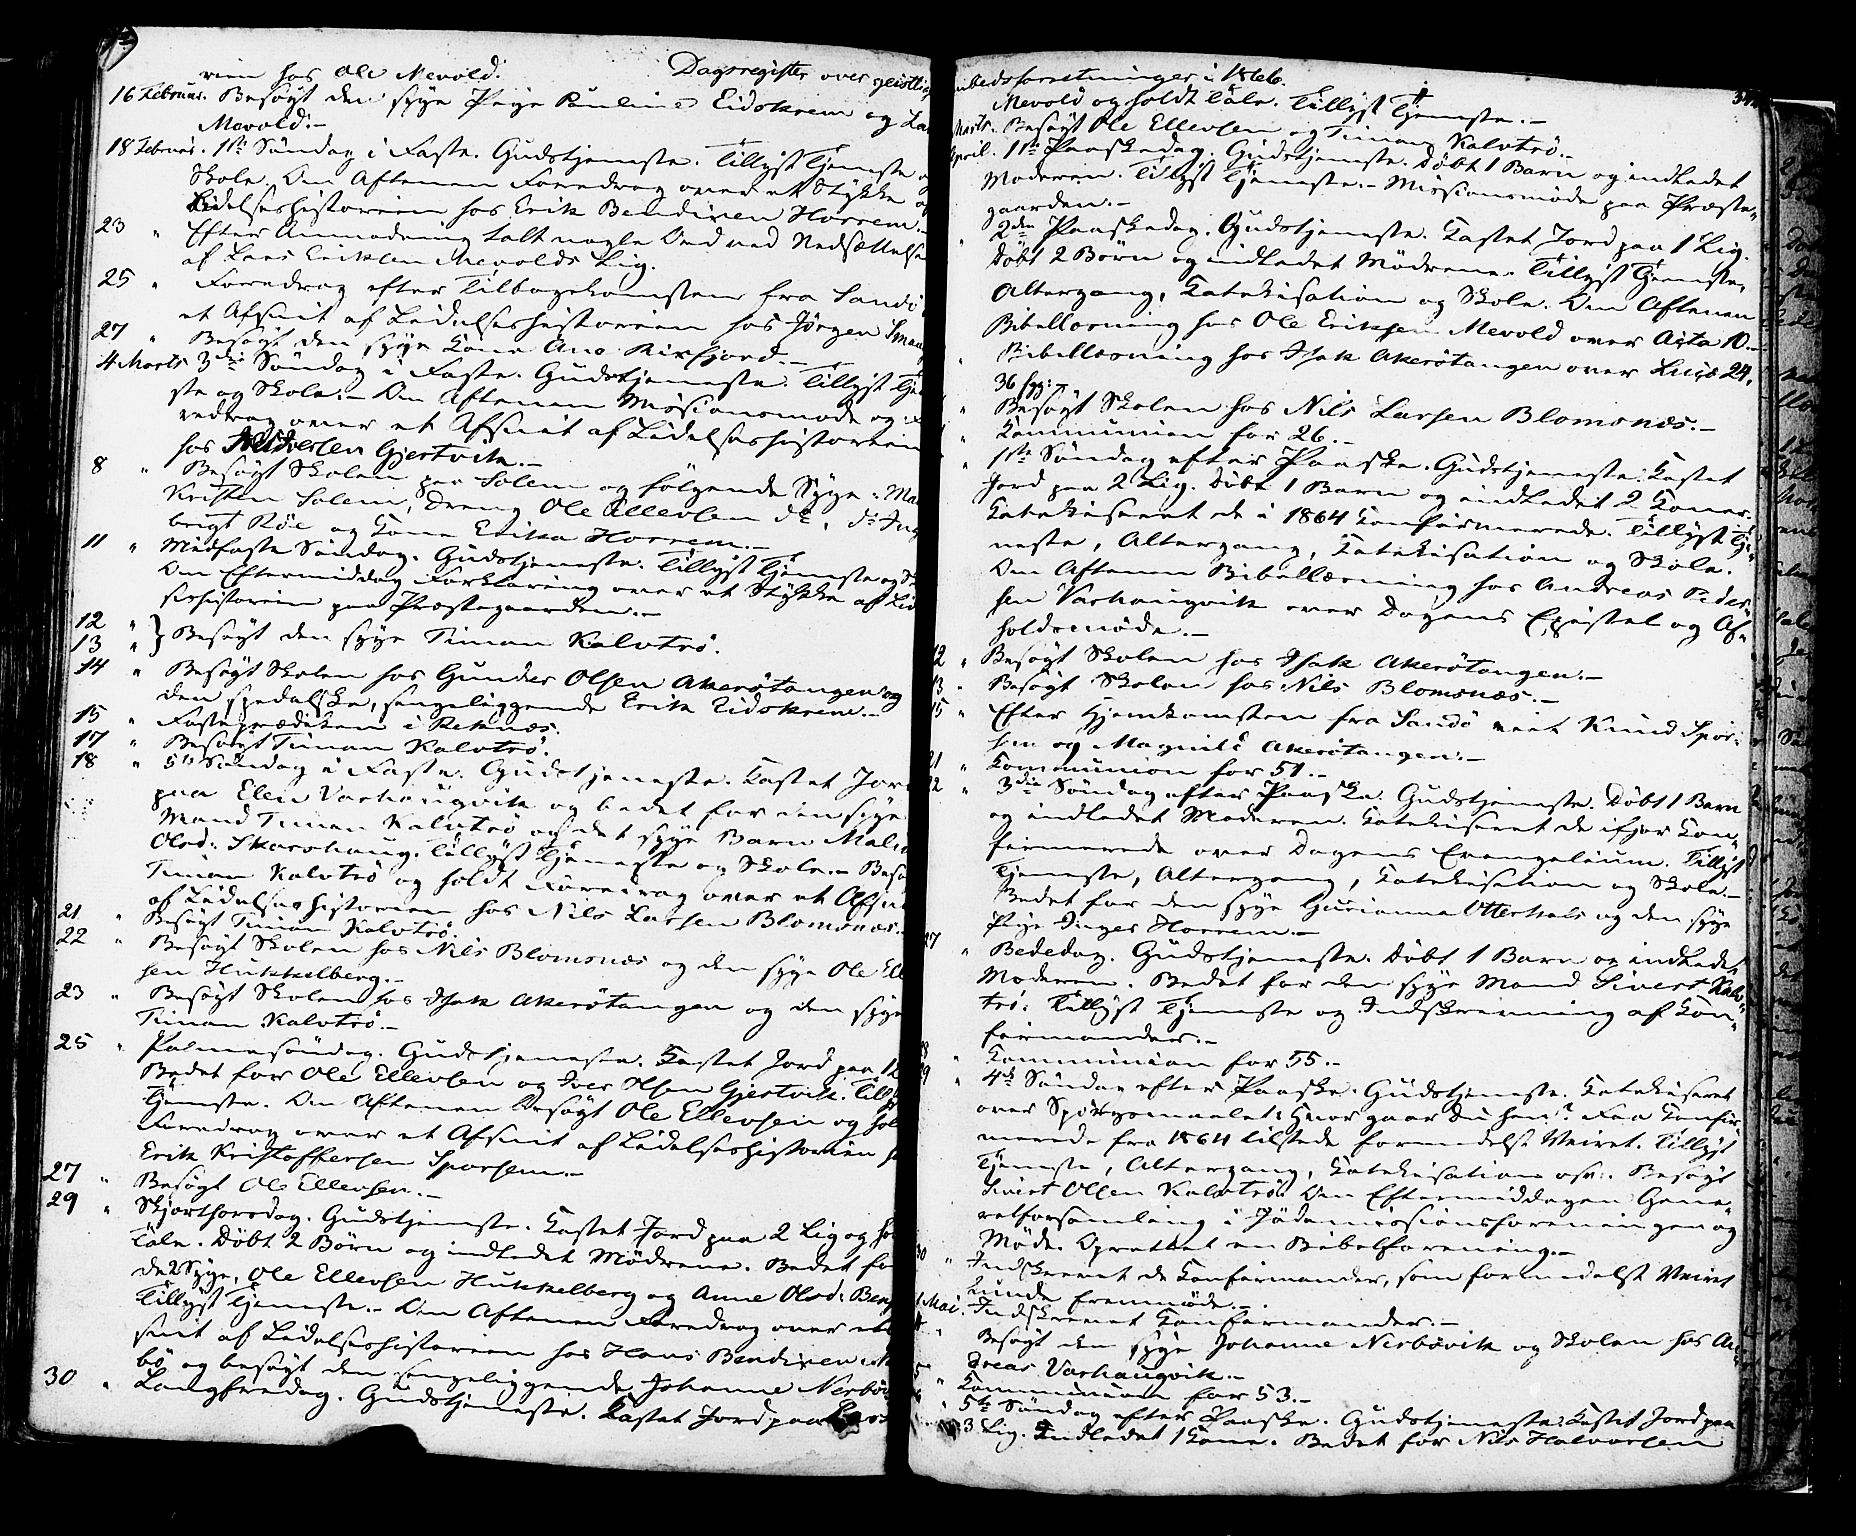 Dagsregister over geistlig
rien hos Ole Mevold.
16 Februar. Besøgt den syge Pige Pauline Eidskrem og La
Mevold.–
18 Februar. 1ste Søndag i Faste. Gudstjeneste. Tillyst Tjeneste o
Skole. Om Aftenen Foredrag over et Stykke af
Lidelseshistorien hos Erik Bendixen Horrem.–
23 " Efter Anmodning talt nogle Ord ved Nedsættelse
af Lars Eriksen Mevolds Lig.
25 " Foredrag efter Tilbagekomsten fra Sandø
et Afsnit af Lidelseshistorien hos Jørgen
27 " Besøgt den syge Kone Ane
4 Marts 3die Søndag i Faste. Gudstjeneste. Tillyst Tjene
ste og Skole.– Om Aftenen Missionsmøde og F
redrag over et Afsnit af Lidelseshistorien
hos Gjertvik.–
8 " Besøgt Skolen paa Solem og følgende Syge: Ma
Kristen Solem, Dreng Ole Ellevsen do, do Ing
brigt Röe og Kone Erika Horrem.–
11 " Midfaste Søndag. Gudstjeneste. Tillyst Tjeneste og Sk
Om Eftermiddag Forklaring over et Stykke af Lid
seshistorien paa Præstegaarden.–
12 "
13 " } Besøgt den syge Timan Kalvtrö.
14 " Besøgt Skolen hos Gunder Olsen Akerötangen og
den spedalske, sengeliggende Erik Eidskrem.–
15 " Fasteprædiken i Reknæs.
17 " Besøgt Timan Kalvtrö.
18 " 5te Søndag i Faste. Gudstjeneste. Kastet Jord
paa Elen Varhaugvik og bedet for den syge
Mand Timan Kalvtrö og det syge Barn
Olsd: Skarshaug. Tillyst Tjeneste og Skole.– Besø
Timan Kalvtrö og holdt Foredrag over et Afsnit
af Lidelseshistorien hos Nils Larsen Blomsnæs.
21 " Besøgt Timan Kalvtrö.
22 " Besøgt Skolen hos Nils Blomsnæs og den syge Ole Elle
sen Hukkelberg.–
23 " Besøgt Skolen hos Isak Akerötangen og den syge
Timan Kalvtrö.–
25 " Palmesøndag. Gudstjeneste. Kastet Jord paa 1
Bedet for Ole Ellevsen og Iver Olsen Gjertvik. Tillyst
Tjeneste. Om Aftenen besøgt Ole Ellevsen og hol
Foredrag over et Afsnit af Lidelseshistorien h
Erik Kristoffersen Sporsem.–
27 " Besøgt Ole Ellevsen.–
29 " Skjærthorsdag. Gudstjeneste. Kastet Jord paa 2 Lig og ho
Tale. Døbt 2 Børn og indledet Mødrene. Bedet fo
de 2 Syge, Ole Ellevsen Hukkelberg og Anne Olsd:
Tillyst Tjeneste.– Om Aftenen Foredrag over et
snit af Lidelseshistorien hos Hans Bendixen
bö og besøgt den sengeliggende Johanne Nerbö
30 " Langfredag. Gudstjeneste. Kastet Jord paa Lars
mbedsforretninger i 1866.
Mevold og holdt Tale. Tillyst Tjeneste.–
Marts. Besøgt Ole Ellevsen og Timan Kalvtrö.–
April. 1ste Paaskedag. Gudstjeneste. Døbt 1 Barn og indledet
Moderen. Tillyst Tjeneste.– Missionsmøde paa Præste-
gaarden.–
" 2den Paaskedag. Gudstjeneste. Kastet Jord paa 1 Lig.
Døbt 2 Børn og indledet Mødrene. Tillyst Tjeneste,
Altergang, Katekisation og Skole. Om Aftenen
Bibellæsning hos Ole Eriksen Mevold over Acta 10.–
" Bibellæsning hos Isak Akerötangen over Lucæ 24,
36 fgg.
" Besøgt Skolen hos Nils Larsen Blomsnæs.–
" Kommunion for 26.–
" 1ste Søndag efter Paaske. Gudstjeneste. Kastet
Jord paa 2 Lig. Døbt 1 Barn og indledet 2 Koner.
Katekiseret de i 1864 Konfirmerede. Tillyst Tje-
neste, Altergang, Katekisation og Skole.
Om Aftenen Bibellæsning hos Andreas Peder-
sen Varhaugvik over Dagens Epistel og Af-
holdsmøde.–
12 " Besøgt Skolen hos Isak Akerötangen.–
13 " Besøgt Skolen hos Nils Blomsnæs.–
15 " Efter Hjemkomsten fra Sandö viet Knud Spor-
sem og Magnild Akerötangen.–
21 " Kommunion for 51.–
22 " 3die Søndag efter Paaske. Gudstjeneste. Døbt 1 Barn
og indledet Moderen. Katekiseret de ifjor Kon-
firmerede over Dagens Evangelium. Tillyst
Tjeneste, Altergang, Katekisation og Skole.–
Bedet for den syge Gurianna Otterhals og den syge
Pige Inger Horrem.–
27 " Bededag. Gudstjeneste. Døbt 1 Barn og indledet
Moderen. Bedet for den syge Mand Sivert Kalv-
trö. Tillyst Tjeneste og Indskrivning af Kon-
firmander.–
28 " Kommunion for 55.–
29 " 4de Søndag efter Paaske. Gudstjeneste. Katekiseret
over Spørgsmaalet: Hvor gaar Du hen? Faa Konfir-
merede fra 1864 tilstede formedelst Veiret. Tillyst
Tjeneste, Altergang, Katekisation osv. Besøgt
Sivert Olsen Kalvtrö. Om Eftermiddagen Gene-
ralforsamling i Jødemissionsforeningen og
Møde. Oprettet en Bibelforening.–
30 " Indskrevet de Konfirmander, som formedelst Veiret
kunde fremmøde.–
1 Mai. Indskrevet Konfirmander.–
" Besøgt den syge Johanne Nerbövik og Skolen hos An-
dreas Varhaugvik.–
5 " Kommunion for 53.–
6 " 5te Søndag efter Paaske. Gudstjeneste. Kastet Jord paa
3 Lig. Indledet 1 Kone. Bedet for Nils Halvorsen